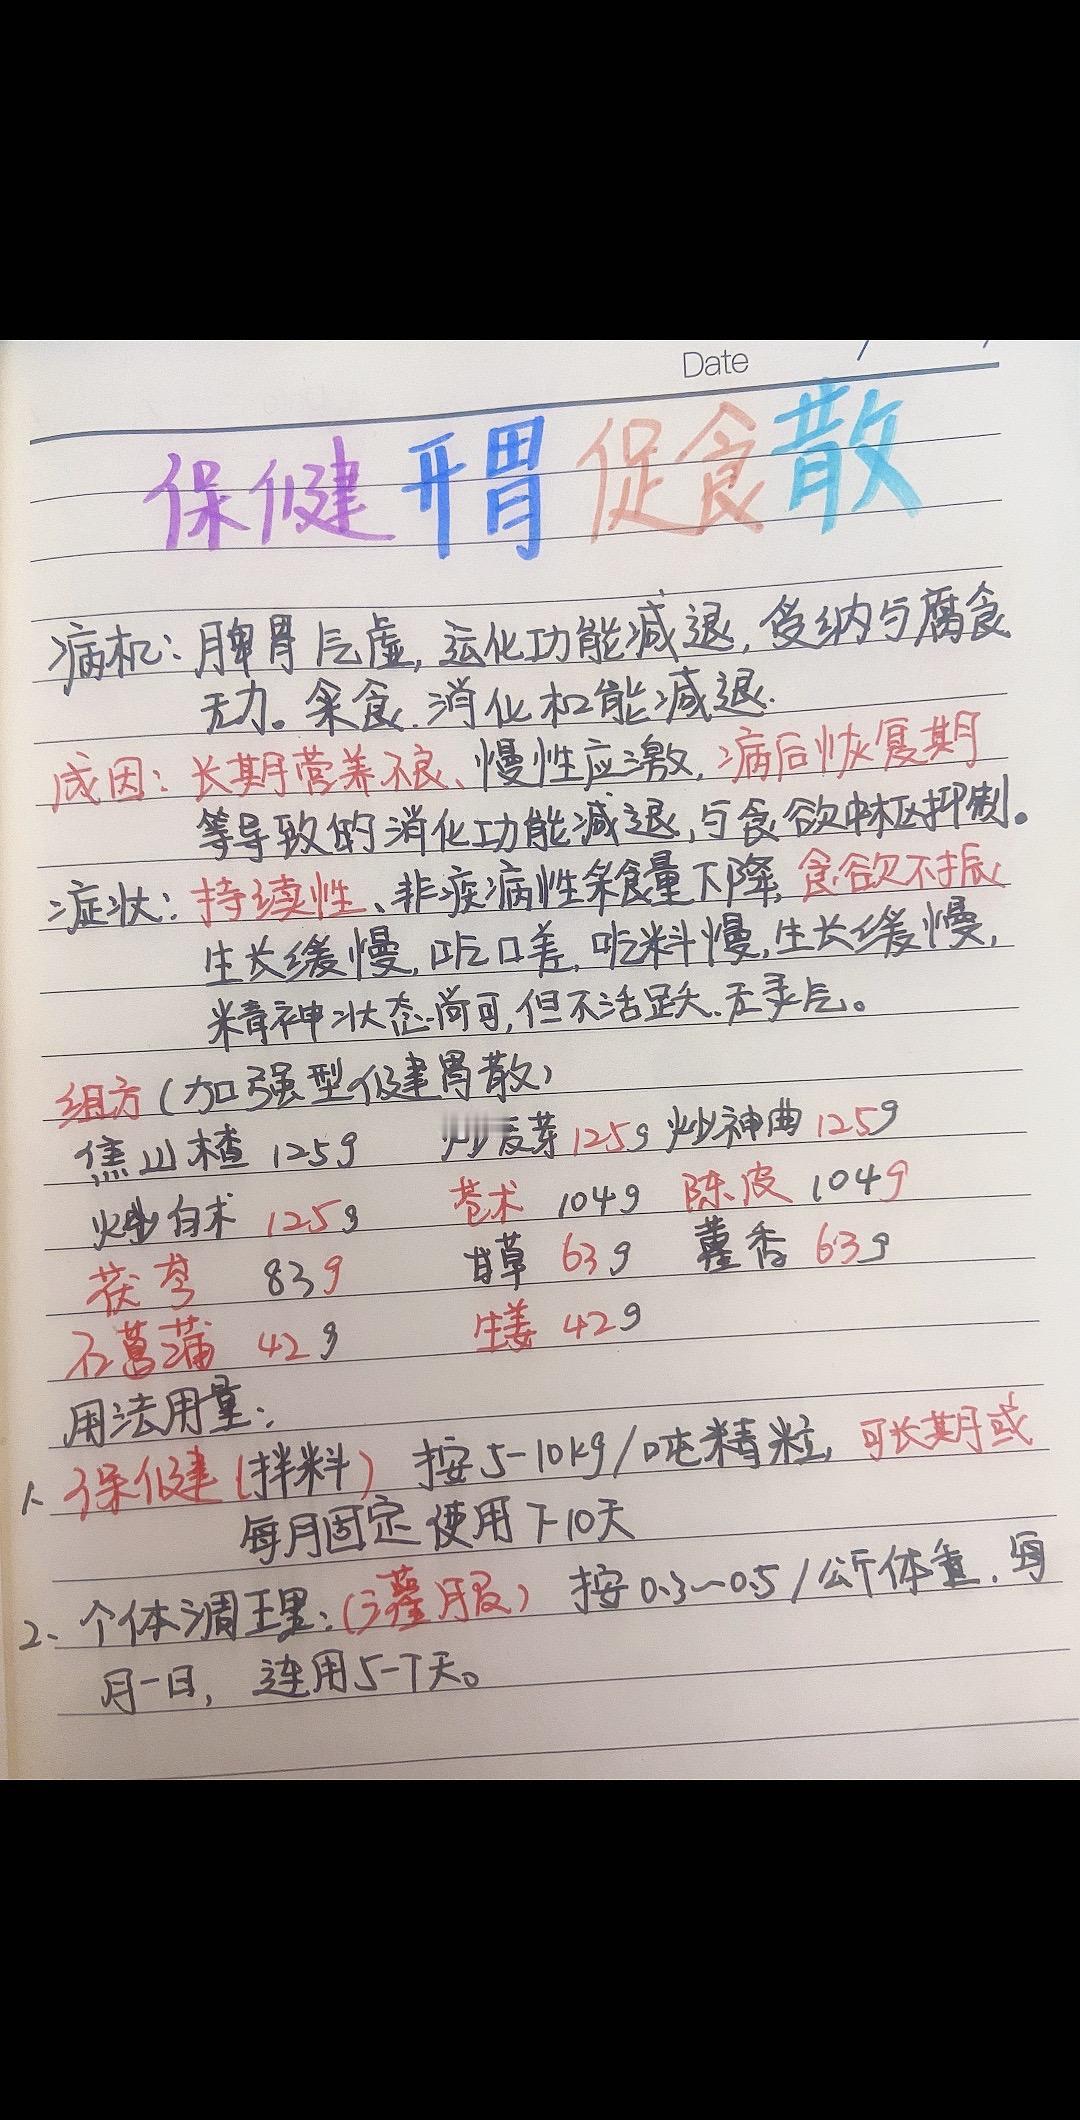 Date
保健开胃促食散
病机：脾胃气虚，运化功能减退，受纳与腐食
无力。采食.消化机能减退.
成因：长期营养不良、慢性应激，病后恢复期
等导致的消化功能减退，与食欲中枢抑制。
症状：持续性、非疾病性采食量下降，食欲不振
生长缓慢，吃口差，吃料慢，生长缓慢，
精神状态尚可，但不活跃、无灵气。
组方（加强型健胃散）
焦山楂 125g 炒麦芽 125g 炒神曲 125g
炒白术 125g 苍术 104g 陈皮 104g
茯苓 83g 甘草 63g 藿香 63g
石菖蒲 42g 生姜 42g
用法用量：
1、保健（拌料） 按5-10kg/吨精粒，可长期或
每月固定使用7-10天
2、个体调理：（灌服） 按0.3～0.5/公斤体重.每
月一日，连用5-7天。